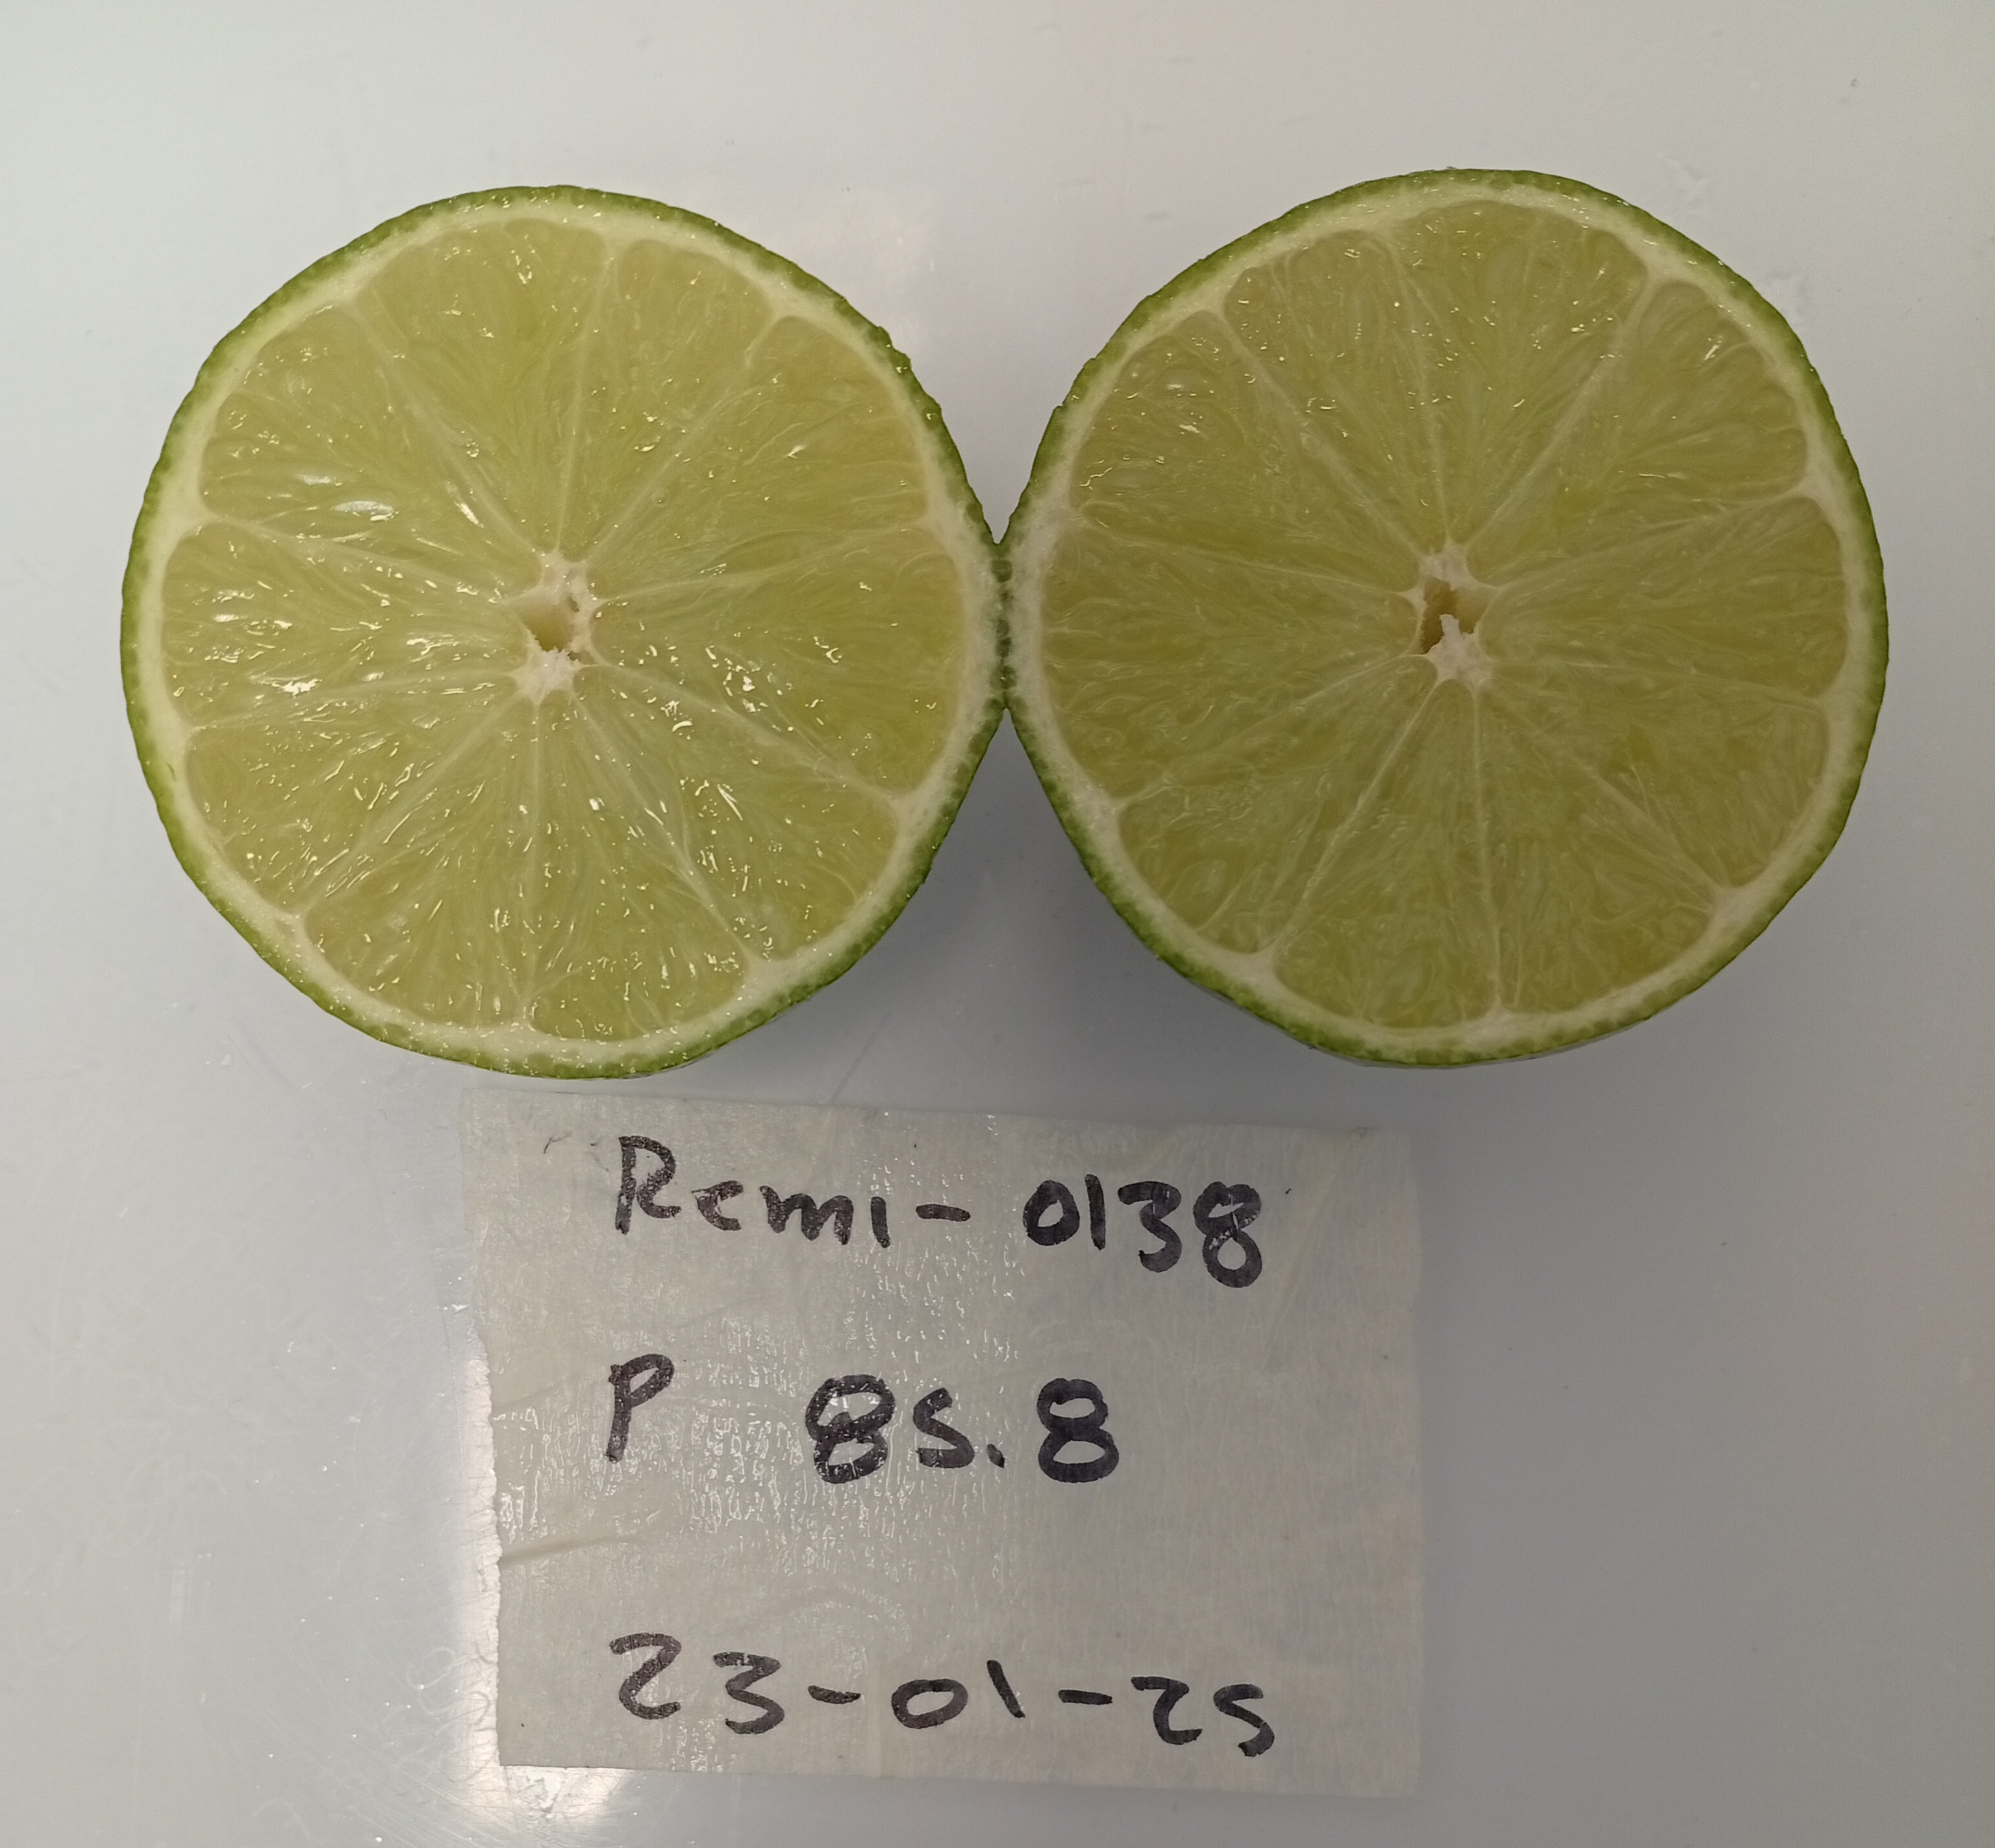 Remi-0138
P 85.8
23-01-25